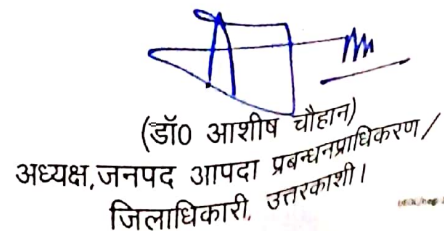 (डॉ0 आशीष चौहान)
अध्यक्ष,जनपद आपदा प्रबन्धनप्राधिकरण/
जिलाधिकारी, उत्तरकाशी।